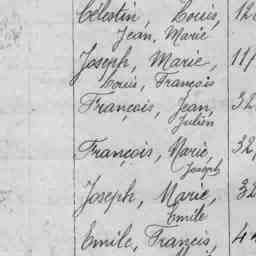 Célestin, Louis,
Jean, Marie
Joseph, Marie,
Louis, François
François, Jean,
Julien
François, Marie,
Joseph
Joseph, Marie,
Emile
Emile, Francis,